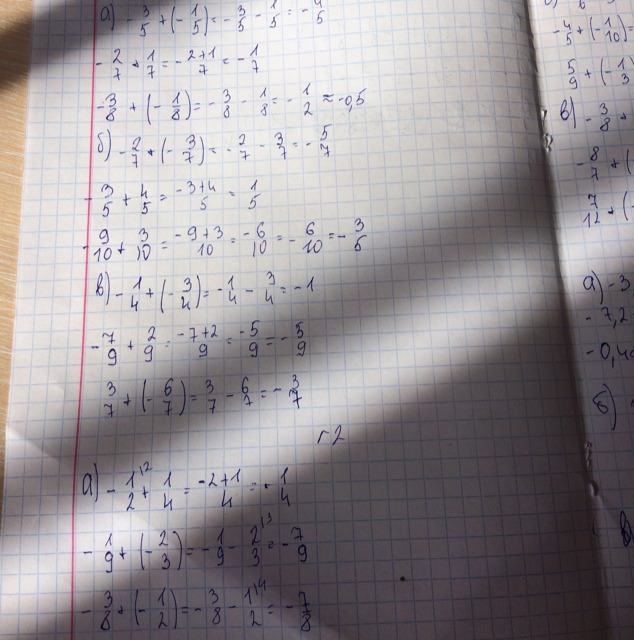 а) -3/5 + (-1/5) = -3/5 - 1/5 = -4/5
-2/7 + 1/7 = -2+1/7 = -1/7
-3/8 + (-1/8) = -3/8 - 1/8 = -1/2 = -0,5
б) -2/7 + (-3/7) = -2/7 - 3/7 = -5/7
-3/5 + 4/5 = -3+4/5 = 1/5
-9/10 + 3/10 = -9+3/10 = -6/10 = -6/10 = -3/5
в) -1/4 + (-3/4) = -1/4 - 3/4 = -1
-7/9 + 2/9 = -7+2/9 = -5/9 = -5/9
3/7 + (-6/7) = 3/7 - 6/7 = -3/7
г2
а) -1/2 |2 + 1/4 = -2+1/4 = -1/4
-1/9 + (-2/3) = -1/9 - 2/3 |3 = -7/9
-3/8 + (-1/2) = -3/8 - 1/2 |4 = -7/8
-4/5 + (-1/10) =
5/9 + (-1/3
в) -3/8 +
-8/7 + (
7/12 + (-
а) -3
-7,2
-0,4
б)